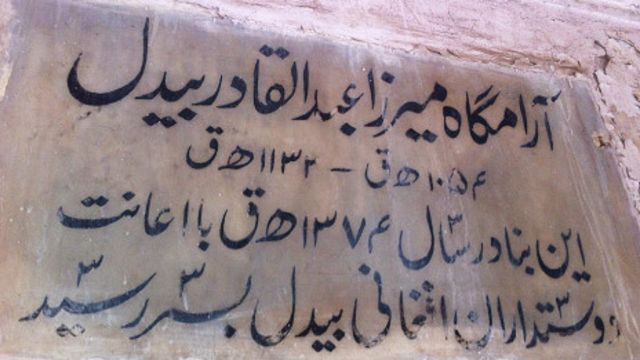 آرامگاه میرزا عبدالقادر بیدل
۱۰۵۴ھ ق - ۱۱۳۲ھ ق
این بنا در سال ۱۳۷۴ھ ق با اعانت
دوستداران افغانی بیدل بسر رسید